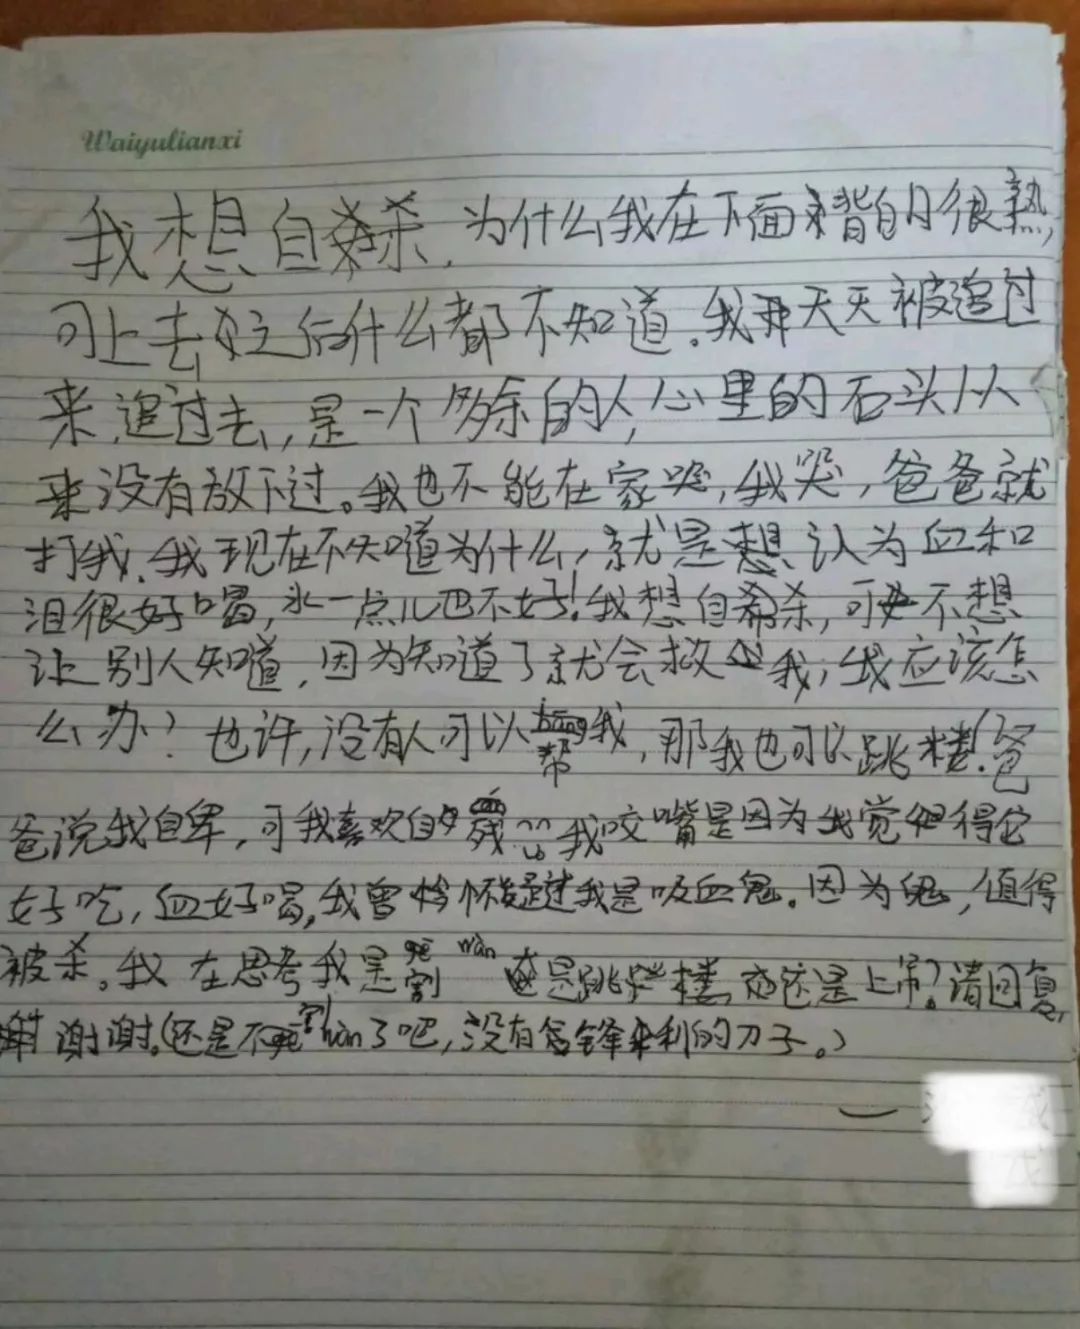 Waiyulianxi
我想自杀.为什么我在下面背的很熟,
可上去之后什么都不知道。我天天被追过
来,追过去,是一个多余的人,心里的石头从
来没有放下过。我也不能在家哭,我哭,爸爸就
打我.我现在不知道为什么,就是想认为血和
泪很好喝,水一点儿也不好!我想自杀,可不想
让别人知道,因为知道了就会救我,我应该怎
么办?也许,没有人可以帮我,那我也可以跳楼!爸
爸说我自卑,可我喜欢自我咬嘴是因为我觉得它
好吃,血好喝,我曾怀疑过我是吸血鬼。因为鬼,值得
被杀。我在思考我是割wàn还是跳楼,还是上吊?请回复,
谢谢.(还是不割wàn了吧,没有锋利的刀子。)